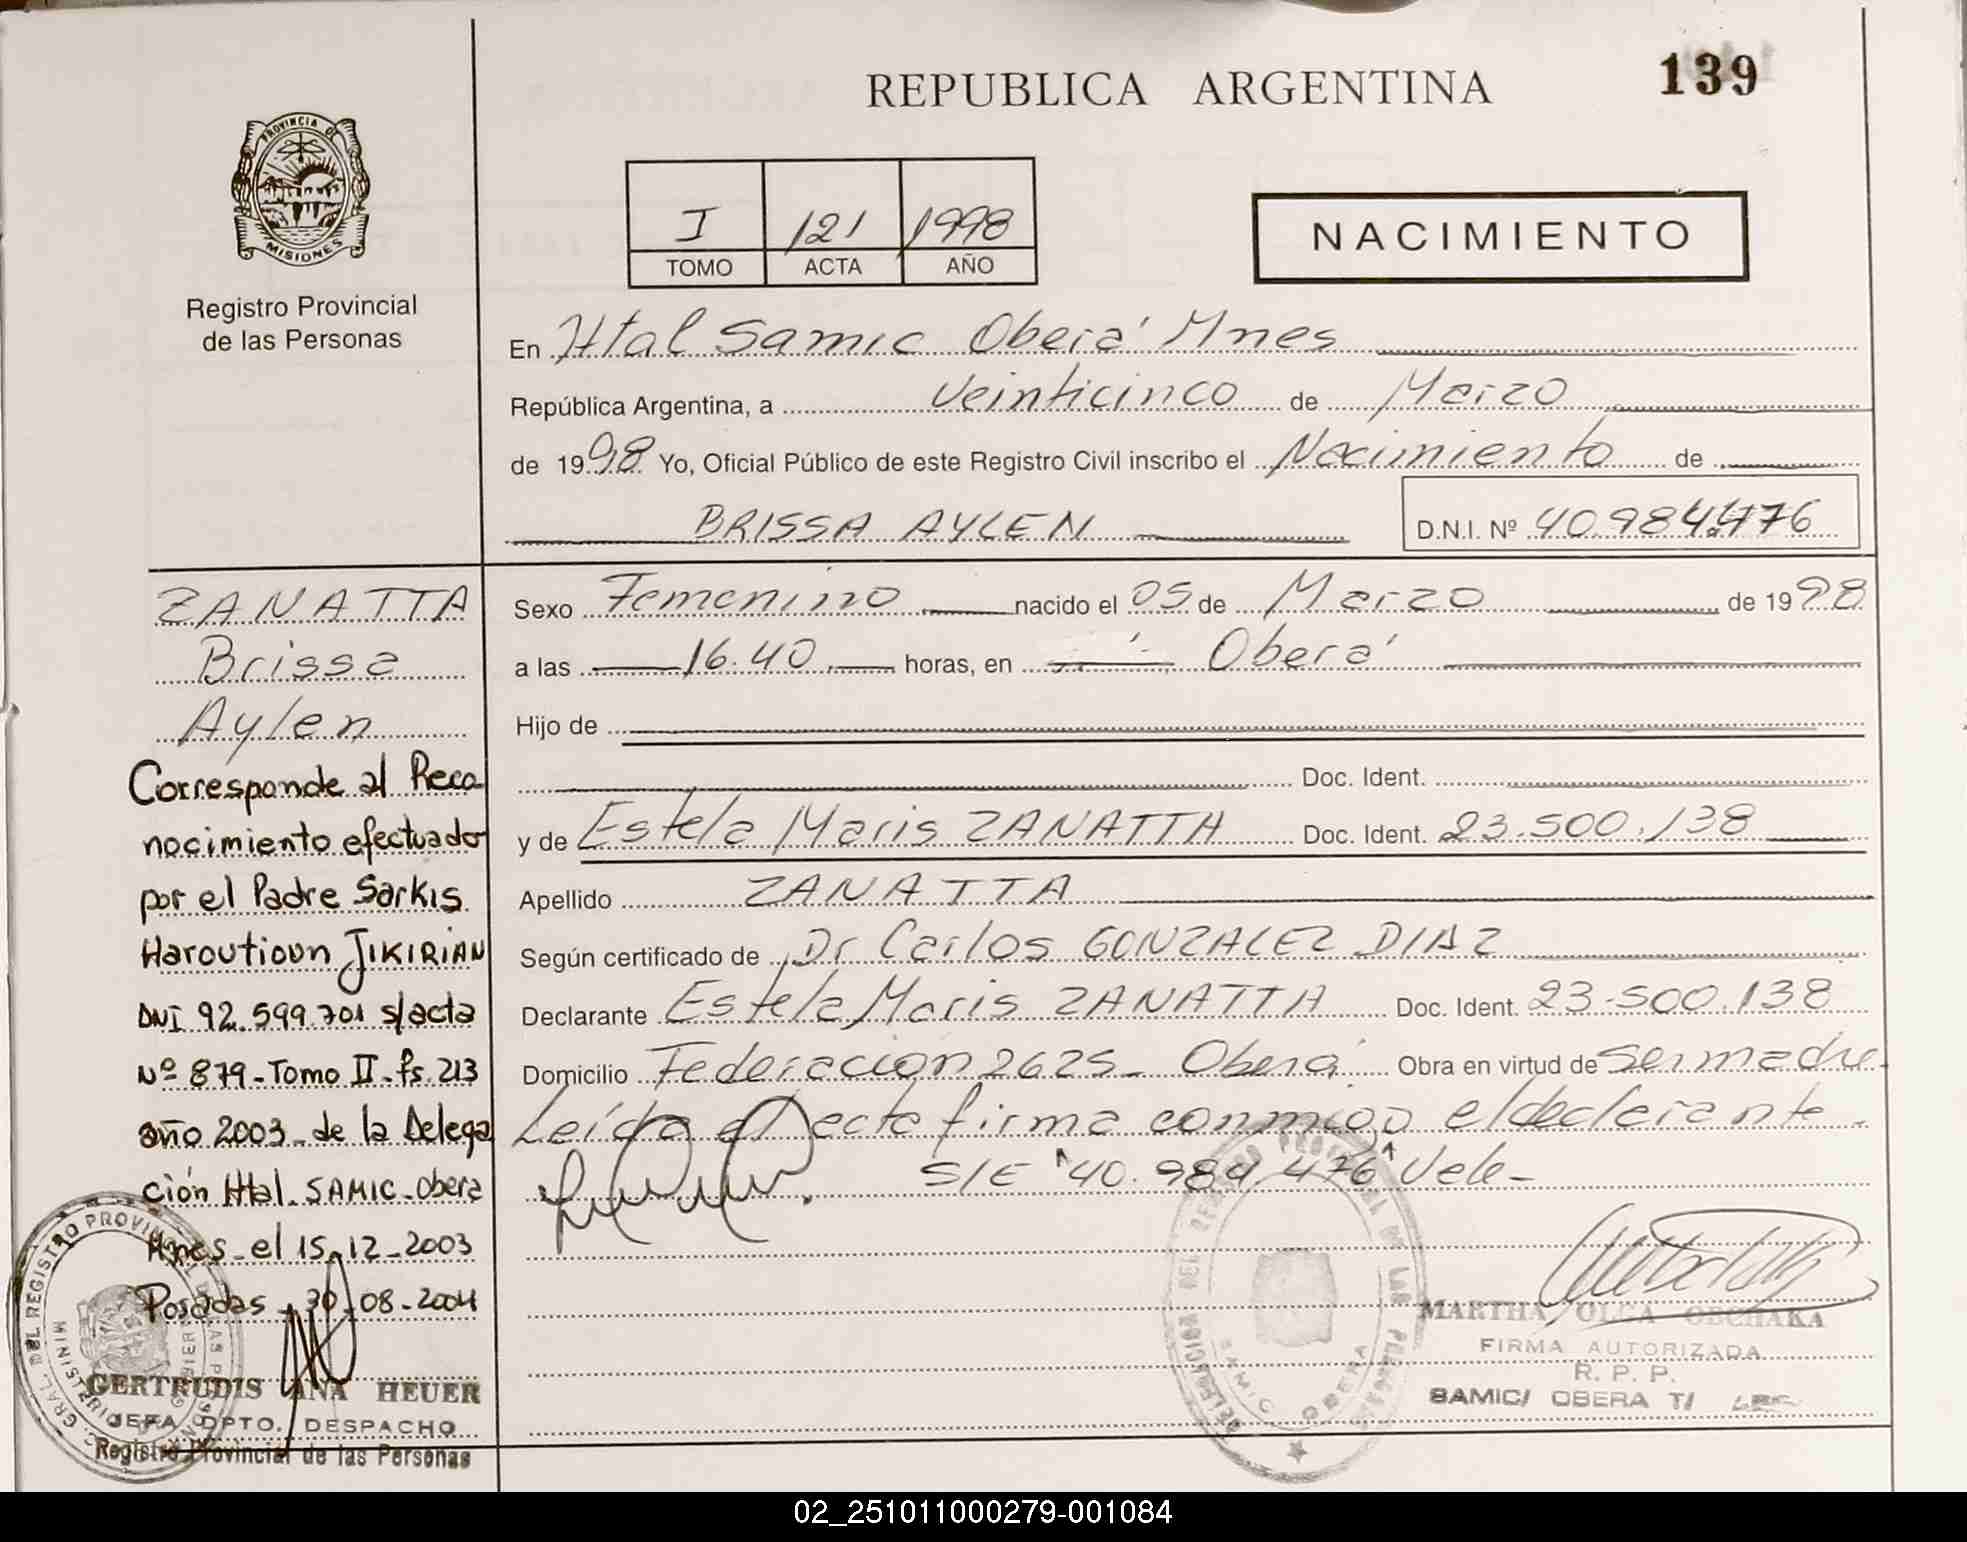 139
REPUBLICA ARGENTINA
PROVINCIA DE
MISIONES
Registro Provincial
de las Personas
I 121 1998
TOMO ACTA AÑO
NACIMIENTO
En Htal Samic Oberá Mnes
República Argentina, a veinticinco de Marzo
de 1998 Yo, Oficial Público de este Registro Civil inscribo el Nacimiento de
BRISSA AYLEN D.N.I. Nº 40.984.476
ZANATTA
Brissa
Aylen
Corresponde al Reco
nocimiento efectuado
por el Padre Sarkis
Haroutioun JIKIRIAN
DNI 92.599.701 s/acta
Nº 879-Tomo II-fs.213
año 2003-de la Delega
ción Htal. SAMIC-Obera
Mnes-el 15-12-2003
Posadas 30-08-2004
GERTRUDIS ANA HEUER
JEFA DPTO. DESPACHO
Registro Provincial de las Personas
Sexo Femenino nacido el 05 de Marzo de 1998
a las 16.40 horas, en Oberá
Hijo de
Doc. Ident.
y de Estela Maris ZANATTA Doc. Ident. 23.500.138
Apellido ZANATTA
Según certificado de Dr Carlos GONZALEZ DIAZ
Declarante Estela Maris ZANATTA Doc. Ident. 23.500.138
Domicilio Federacion 2625- Oberá Obra en virtud de ser madre-
Leída el acta firma conmigo el declarante-
S/E "40.984.476" Vele-
MARTHA OLGA OBCHAKA
FIRMA AUTORIZADA
R. P. P.
SAMIC/ OBERA T/
SAMIC OBERA
02_251011000279-001084